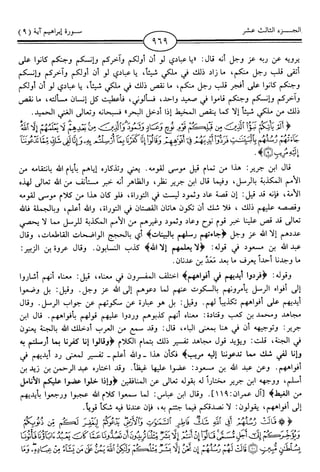 الجــزء الثالث عشر
٩٦٩
ســورة إبراهيم آية (٩)
يرويه عن ربه عز وجل أنه قال: «يا عبادي لو أن أولكم وآخركم وإنسكم وجنكم كانوا على
أتقى قلب رجل منكم، ما زاد ذلك في ملكي شيئاً، يا عبادي لو أن أولكم وآخركم وإنسكم
وجنكم كانوا على أفجر قلب رجل منكم، ما نقص ذلك في ملكي شيئاً، يا عبادي لو أن أولكم
وآخركم وإنسكم وجنكم قاموا في صعيد واحد، فسألوني، فأعطيت كل إنسان مسألته، ما نقص
ذلك من ملكي شيئاً إلا كما ينقص المخيط إذا أدخل البحر» فسبحانه وتعالى الغني الحميد.
﴿أَلَمْ يَأْتِكُمْ نَبَؤُا الَّذِينَ مِن قَبْلِكُمْ قَوْمِ نُوحٍ وَعَادٍ وَثَمُودَ وَالَّذِينَ مِن بَعْدِهِمْ لَا يَعْلَمُهُمْ إِلَّا اللَّهُ
جَاءَتْهُمْ رُسُلُهُم بِالْبَيِّنَاتِ فَرَدُّوا أَيْدِيَهُمْ فِي أَفْوَاهِهِمْ وَقَالُوا إِنَّا كَفَرْنَا بِمَا أُرْسِلْتُم بِهِ وَإِنَّا لَفِي شَكٍّ مِّمَّا تَدْعُونَنَا
إِلَيْهِ مُرِيبٍ﴾
قال ابن جرير: هذا من تمام قيل موسى لقومه. يعني وتذكاره إياهم بأيام الله بانتقامه من
الأمم المكذبة بالرسل، وفيما قال ابن جرير نظر، والظاهر أنه خبر مستأنف من الله تعالى لهذه
الأمة، فإنه قد قيل: إن قصة عاد وثمود ليست في التوراة، فلو كان هذا من كلام موسى لقومه
وقصصه عليهم ذلك، فلا شك أن تكون هاتان القصتان في التوراة، والله أعلم، وبالجملة فالله
تعالى قد قص علينا خبر قوم نوح وعاد وثمود وغيرهم من الأمم المكذبة للرسل مما لا يحصي
عددهم إلا الله عز وجل ﴿جاءتهم رسلهم بالبينات﴾ أي بالحجج الواضحات القاطعات، وقال
عبد الله بن مسعود في قوله: ﴿لا يعلمهم إلا الله﴾ كذب النسابون. وقال عروة بن الزبير:
ما وجدنا أحداً يعرف ما بعد معدّ بن عدنان.
وقوله: ﴿فردوا أيديهم في أفواههم﴾ اختلف المفسرون في معناه، قيل: معناه أنهم أشاروا
إلى أفواه الرسل يأمرونهم بالسكوت عنهم لما دعوهم إلى الله عز وجل. وقيل: بل وضعوا
أيديهم على أفواههم تكذيباً لهم. وقيل: بل هو عبارة عن سكوتهم عن جواب الرسل. وقال
مجاهد ومحمد بن كعب وقتادة: معناه أنهم كذبوهم وردوا عليهم قولهم بأفواههم. قال ابن
جرير: وتوجيهه أن في هنا بمعنى الباء، قال: وقد سمع من العرب أدخلك الله بالجنة يعنون
في الجنة، قلت: ويؤيد قول مجاهد تفسير ذلك بتمام الكلام ﴿وقالوا إنا كفرنا بما أرسلتم به
وإنا لفي شك مما تدعوننا إليه مريب﴾ فكأن هذا ـ والله أعلم ـ تفسير لمعنى رد أيديهم في
أفواههم. وعن عبد الله بن مسعود: عضوا عليها غيظاً. وقد اختاره عبد الرحمن بن زيد بن
أسلم، ووجهه ابن جرير مختاراً له بقوله تعالى عن المنافقين ﴿وإذا خلوا عضوا عليكم الأنامل
من الغيظ﴾ [آل عمران: ١١٩]. وقال ابن عباس: لما سمعوا كلام الله عجبوا ورجعوا بأيديهم
إلى أفواههم، يقولون: لا نصدقكم فيما جئتم به، فإن عندنا فيه شكاً قوياً.
﴿قَالَتْ رُسُلُهُمْ أَفِي اللَّهِ شَكٌّ فَاطِرِ السَّمَاوَاتِ وَالْأَرْضِ يَدْعُوكُمْ لِيَغْفِرَ لَكُم مِّن ذُنُوبِكُمْ
وَيُؤَخِّرَكُمْ إِلَى أَجَلٍ مُّسَمًّى قَالُوا إِنْ أَنتُمْ إِلَّا بَشَرٌ مِّثْلُنَا تُرِيدُونَ أَن تَصُدُّونَا عَمَّا كَانَ يَعْبُدُ آبَاؤُنَا فَأْتُونَا